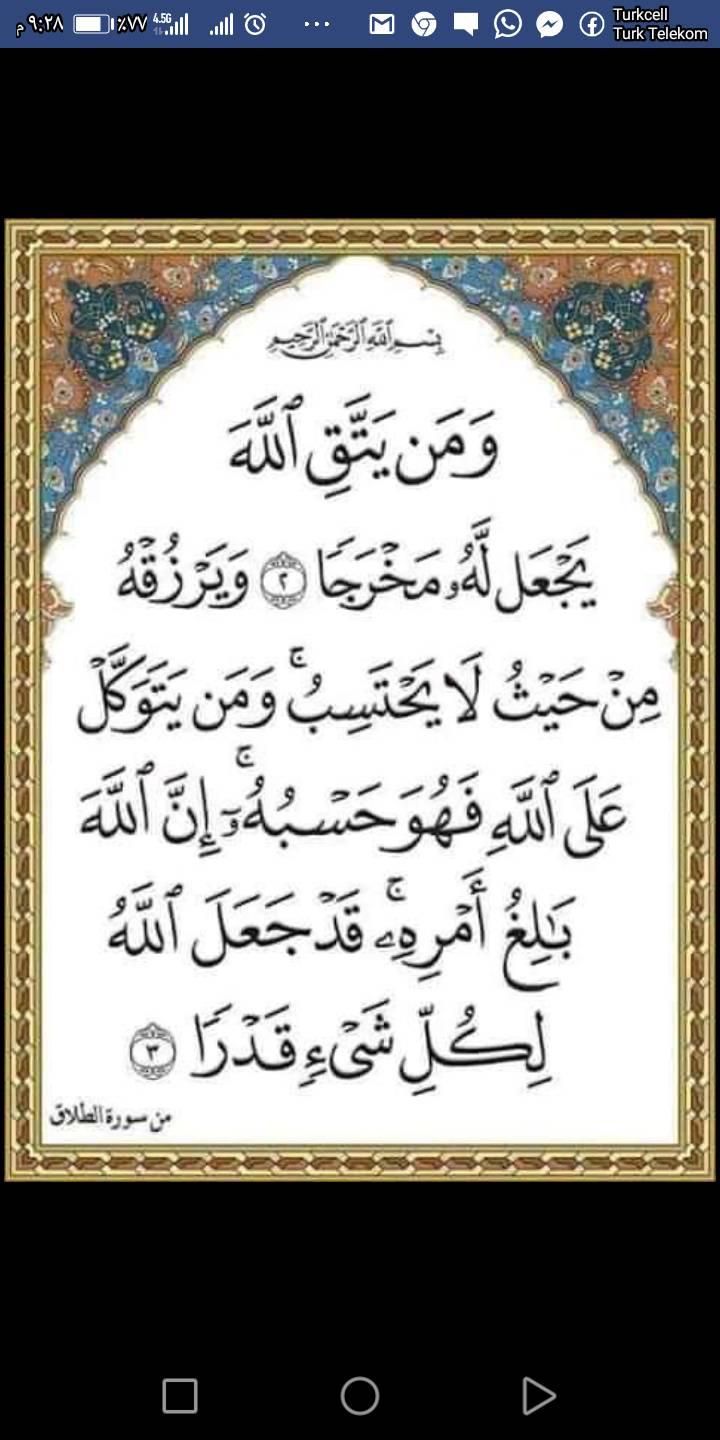 ٩:٢٨ م ٪٧٧ 4.5G Turkcell
Turk Telekom
بِسْمِ ٱللَّهِ ٱلرَّحْمَٰنِ ٱلرَّحِيمِ
وَمَن يَتَّقِ ٱللَّهَ
يَجْعَل لَّهُۥ مَخْرَجًا ٢ وَيَرْزُقْهُ
مِنْ حَيْثُ لَا يَحْتَسِبُ ۚ وَمَن يَتَوَكَّلْ
عَلَى ٱللَّهِ فَهُوَ حَسْبُهُۥٓ ۚ إِنَّ ٱللَّهَ
بَٰلِغُ أَمْرِهِۦ ۚ قَدْ جَعَلَ ٱللَّهُ
لِكُلِّ شَىْءٍ قَدْرًا ٣
من سورة الطلاق